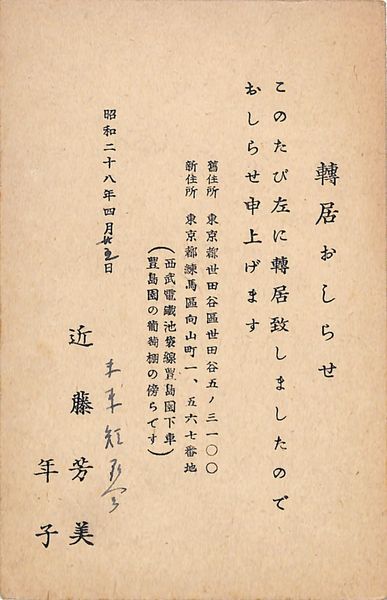 轉居おしらせ
このたび左に轉居致しましたので
おしらせ申上げます
舊住所 東京都世田谷區世田谷五ノ三一〇〇
新住所 東京都練馬區向山町一、五六七番地
(西武電鐵池袋線豐島園下車
豐島園の葡萄棚の傍らです)
昭和二十八年四月廿五日
未来短歌会
近藤芳美
年子